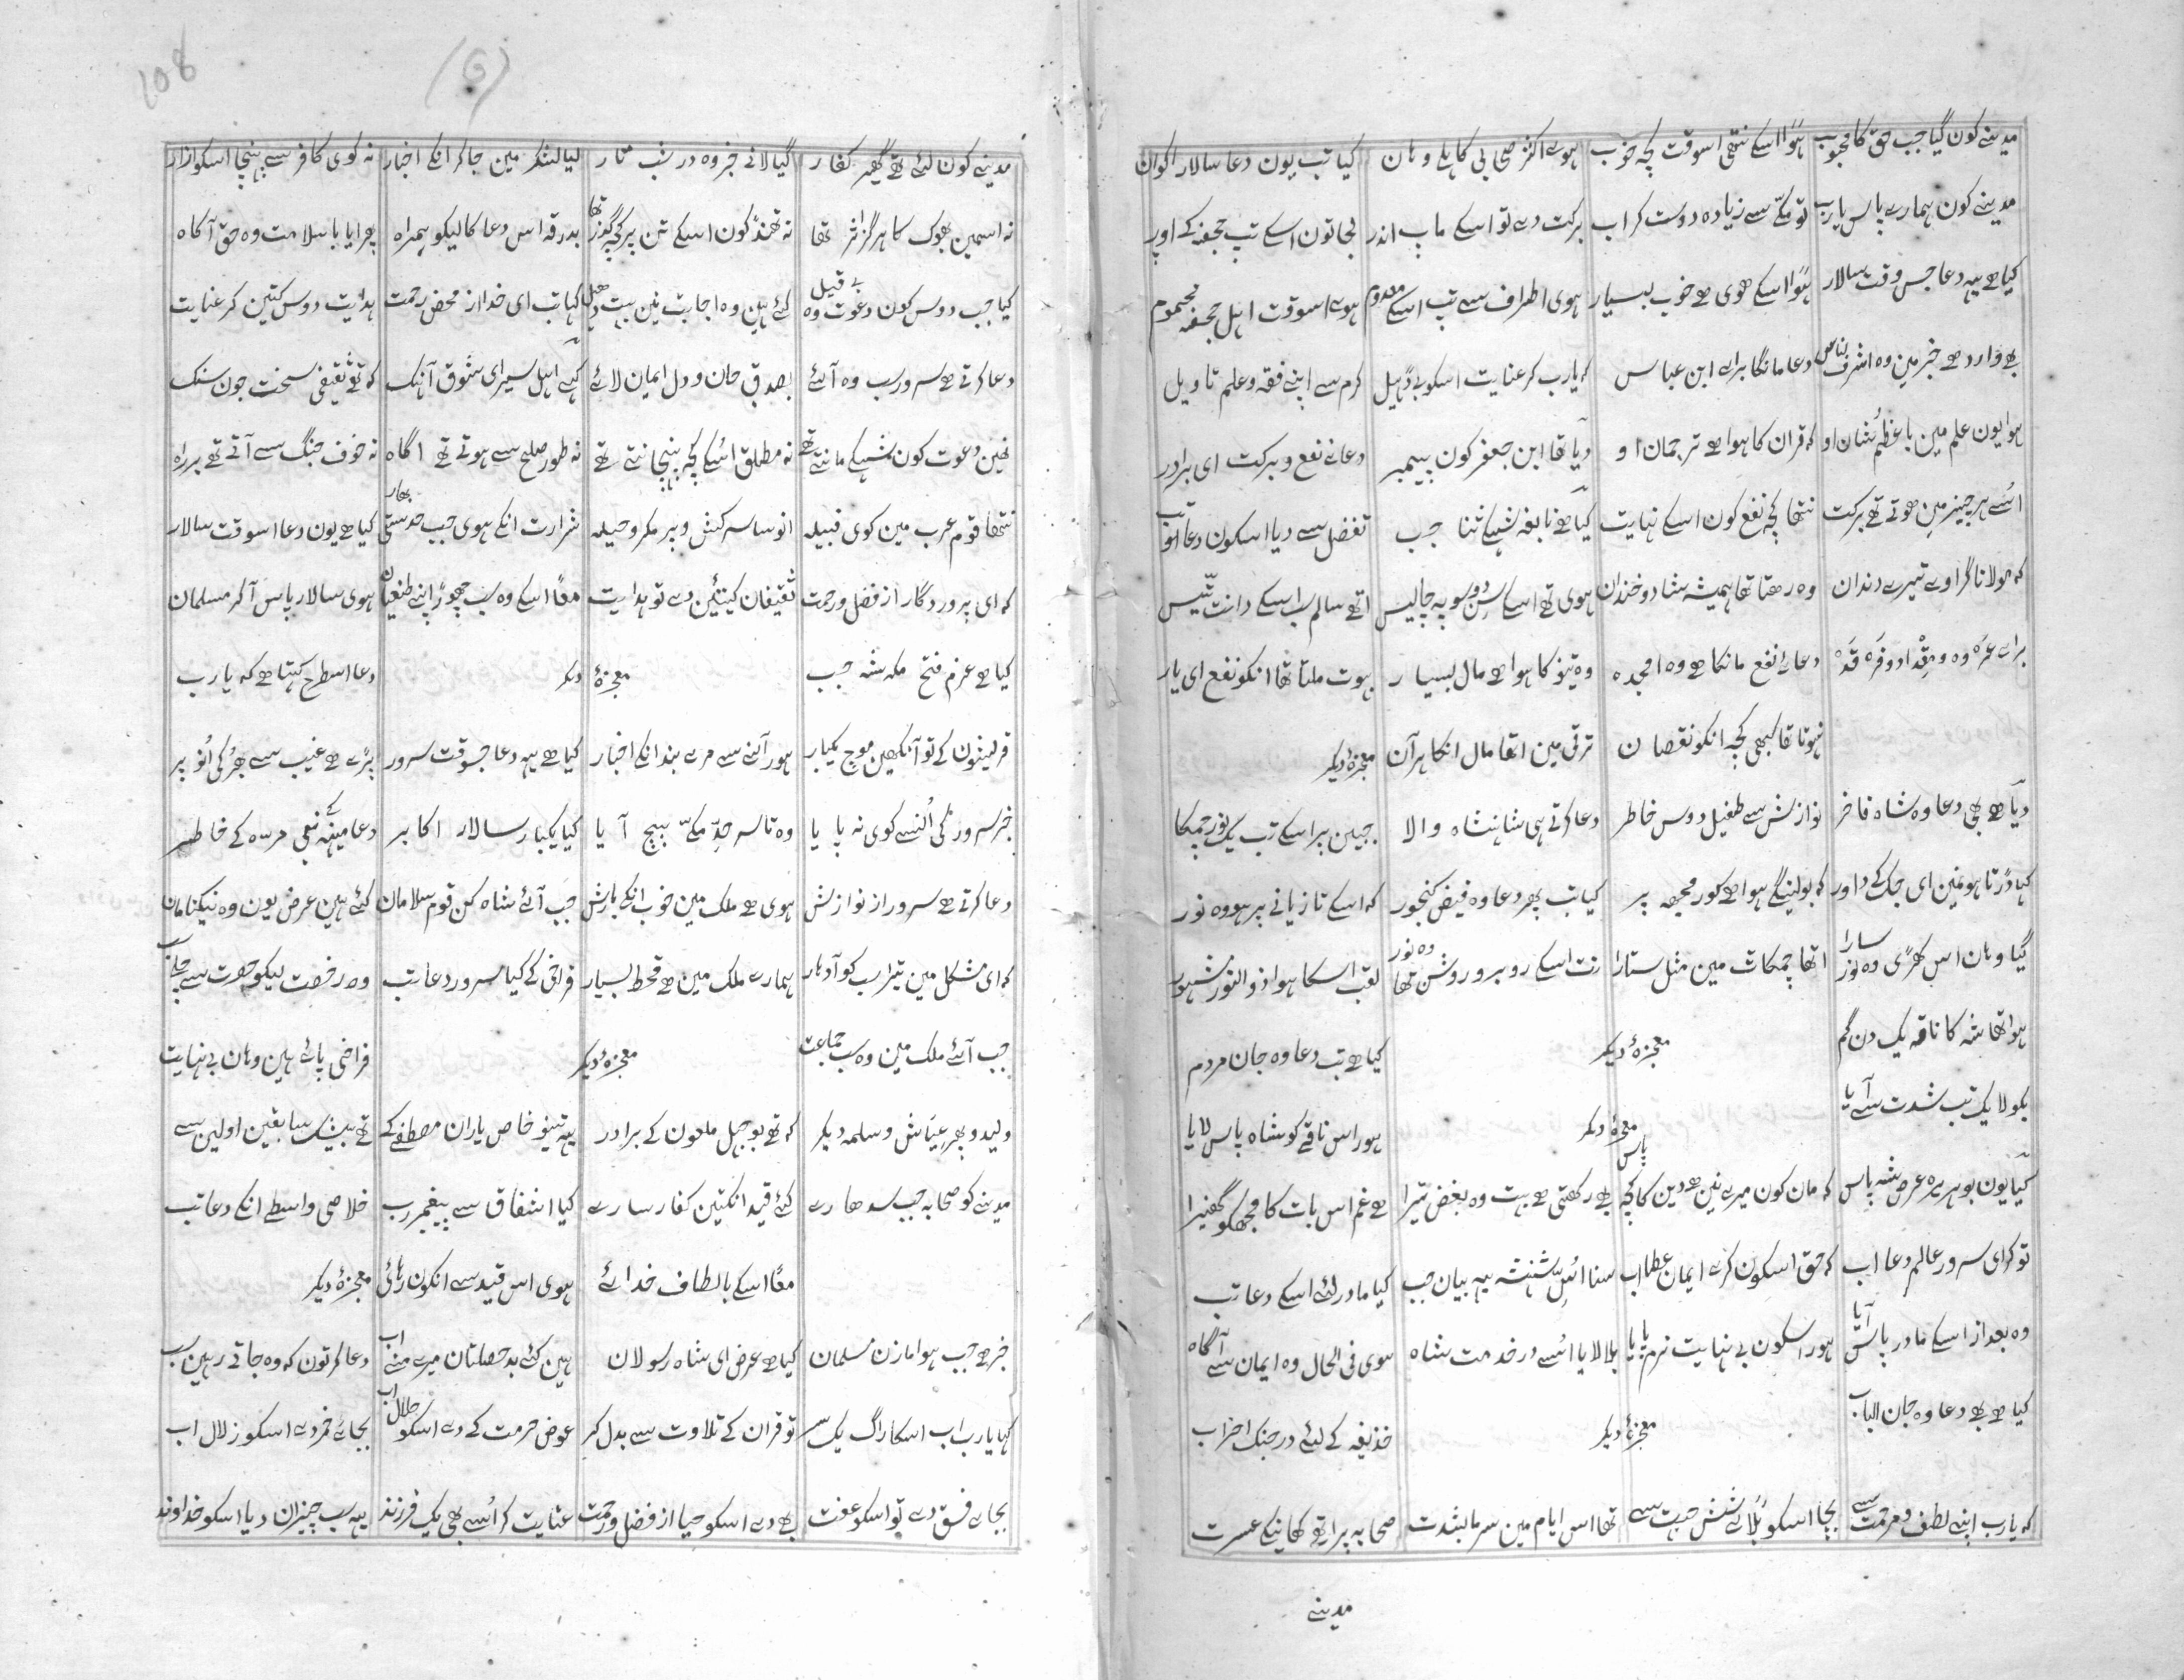 مدینے کون گیا جب حق کا محبوب ہوا اسکے نتھی اسوقت کچہ خوب ہوے اکثر صحابی کاہلے وہان کیا تب یون دعا سالار اکوان
مدینے کون ہمارے پاس یارب تو مکّے سے زیادہ دوست کر اب برکت دے تو اسکے ماپ اندر لیجا تون اسکے تپ جحفہ کے اوپر
کیا ہے یہہ دعا جس وقت سالار ہوا اسکے ہوی ہے خوب بسیار ہوی اطراف سے تپ اسکے معدوم ہوے اسوقت اہل جحفہ محموم
ہے وارد ہے خبر مین وہ اشرف ناس دعا مانگا براے ابن عباس کہ یارب کر عنایت اسکو بے ڈہیل کرم سے اپنے فقہ و علم تاویل
ہوا یون علم مین با عظم شان او کہ قران کا ہوا ہے ترجمان او دیا تھا ابن جعفر کون پیمبر دعاے نفع و برکت ای برادر
اُسے ہر چیز مین ہوتے تھے برکت نتھا کچہ نفع کون اسکے نہایت کیا ہے نابغہ شہکے ثنا جب تفضل سے دیا اسکون دعا تب
کہ مولا نا گراوے تیرے دندان وہ رھتا تھا ہمیشہ شاد و خندان ہوی تھے اسکے سن دو سو پہ چالیس اتھے سالم سب اسکے دانت بتّیس
براے عروہ و مقداد و فروہ قدوہ دعاے نفع مانگا ہے وہ امجدہ وہ تینو کا ہوا ہے مال بسیار بہوت ملتا تھا انکو نفع ای یار
نہوتا تھا کبھی کچہ انکو نقصان ترقی مین اتھا مال انکا ہر آن معجزۂ دیگر
دیا ہے بھی دعا وہ شاہ فاخر نوازش سے طفیل دوس خاطر دعا کرتے ہی شاہنشاہ والا جبین پر اسکے تب یک نور چمکا
کہا ڈرتا ہو نمین ای جگ کے داور کہ بولینگے ہوا ہے کور مجھہ پر کیا تب پھر دعا وہ فیض گنجور کہ اسکے تازیانے پر ہو وہ نور
گیا وہان اس گھڑی وہ نور سارا اتھا چمکات مین مثل ستارا رنت اسکے روبرو روشن تھا وہ نور لقب اسکا ہوا ذو النور مشہور
ہوا تھا شہ کا ناقہ یک دن گم معجزۂ دیگر کیا ہے تب دعا وہ جان مردم
بگولا یک تب شدت سے آیا معجزۂ دیگر ہور اس ناقے کو شاہ پاس لایا
کیا یون بوہریرہ عرض شہ پاس کہ مان کون میرے نین ہے دین کا کچہ پاس ہے رکھتی ہے بہت وہ بغض تیرا ہے غم اس بات کا مجھکو گھنیرا
تو کر ای سرور عالم دعا اب کہ حق اسکون کرے ایمان عطا اب سنا اس شہنشہ یہہ بیان جب کیا مادر لئے اسکے دعا تب
وہ بعد از اسکے مادر پاس آیا ہور اسکون بے نہایت نرم پایا بلا لایا اُسے در خدمت شاہ ہوی فی الحال وہ ایمان سے آگاہ
کیا ہے بھے دعا وہ جان الباب معجزۂ دیگر حذیفہ کے لئے در جنگ احزاب
کہ یارب اپنے لطف و مرحمت سے بچا اسکو بلائے شش جہت سے تھا اس ایام مین سرما بشدت صحابہ پر اتھے کھانیکے عسرت
مدینے
108
مدینے کون لئے تھے گھیر کفار گیا لانے خبر وہ در شب تار لیا لشکر مین جا کر انکے اخبار نہ کوی کافر سے پہنچا اسکو ازار
نہ اسمین بھوک کا ہرگز اثر تھا نہ تھنڈ کون اسکے تن پر کچہ گذر تھا بدرقہ اس دعا کا لیکو ہمراہ پھر ایا با سلامت وہ حق آگاہ
کیا جب دوس کون دعوت وہ بے قیل کئے ہین وہ اجابت نین بہت ڈھیل کہا تب ای خدا از محض رحمت ہدایت دوس کتین کر عنایت
دعا کرتے ہے سرور سب وہ آئے بصدق جان و دل ایمان لائے کہے اہل سیر ای شوق آہنگ کہ تھے ثقیفی سخت جون سنگ
نہین دعوت کون شہکے مانتے تھے نہ مطلق اُسکے کچہ پنچانتے تھے نہ طور صلح سے ہوتے تھے اگاہ نہ خوف جنگ سے آتے تھے بر راہ
نتھا قوم عرب مین کوی قبیلہ انو سا سرکش و پر مکر و حیلہ شرارت انکے ہوی جب حد ستی بھار کیا ہے یون دعا اسوقت سالار
کہ ای پروردگار از فضل و رحمت ثقیفان کیتئین دے تو ہدایت معًا اسکے وہ سب چھوڑ اپنے طغیان ہوی سالار پاس آ کر مسلمان
کیا ہے عزم فتح مکہ شہ جب معجزۂ دیگر دعا اسطرح کیتا ہے کہ یارب
قریشون کے تو آنکھین موچ یکبار ہور آنے سے مرے بند انکے اخبار کیا ہے یہہ دعا جسوقت سرور پڑے ہے غیب سے پھر کی اُنو پر
خبر سرور کی اُنسے کوی نہ پایا وہ تا سرحدِ مکّے بیچ آیا کیا یکبار سالار اکابر دعا مینھہ کے نبی مرہ کے خاطر
دعا کرتے ہے سرور از نوازش ہوی ہے ملک مین خوب انکے بارش جب آئے شاہ کن قوم سلامان کئے ہین عرض یون وہ نیکنامان
کہ ای مشکل مین تیرا سب کو آدھار ہمارے ملک مین ہے قحط بسیار فراخی کے کیا سرور دعا تب وہ رخصت لیکو حضرت سے
جب آئے ملک مین وہ سب جماعت معجزۂ دیگر فراخی پائے ہین وہان بے نہایت
ولید و پھر عیّاش و سلمہ دیگر کہ تھے بوجہل ملعون کے برادر یہہ تینو خاص یاران مصطفے کے تھے بیشک سابقین اولین سے
مدینے کو صحابہ جب سدھارے کئے قید انکتین کفار سارے کیا اشفاق سے پیغمبر رب خلاصی واسطے انکے دعا تب
معًا اسکے بالطاف خدائے ہوی اس قید سے انکون رہائی معجزۂ دیگر
خبر ہے جب ہوا مازن مسلمان کیا ہے عرض ای شاہ رسولان ہین کئے بد خصلتان میرے منے اب دعا کر تون کہ وہ جاتے رہین سب
کہا یارب اب اسکا راگ یک سر تو قران کے تلاوت سے بدل کر عوض حرمت کے دے اسکو حلال اب بجائے خمر دے اسکو زلال اب
بجاے فسق دے تو اسکو عفت بھے دے اسکو حیا از فضل و رحمت عنایت کر اُسے بھی یک فرزند یہہ سب چیزان دیا اسکو خداوند